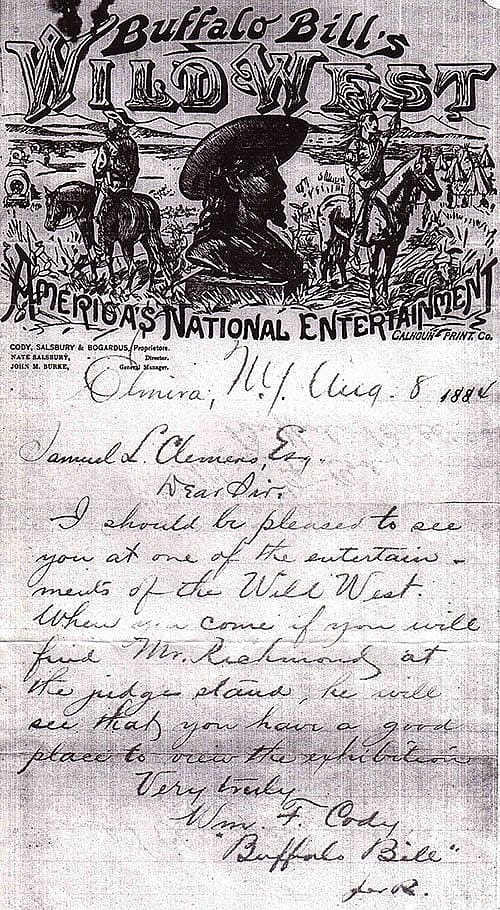 Buffalo Bill's
WILD WEST
AMERICA'S NATIONAL ENTERTAINMENT
CALHOUN PRINT. CO.
CODY, SALSBURY & BOGARDUS, Proprietors.
NATE SALSBURY, Director.
JOHN M. BURKE, General Manager.
Elmira, N.Y. Aug. 8 1884
Samuel L. Clemens, Esq.
Dear Sir.
I should be pleased to see
you at one of the entertain-
ments of the Wild West.
When you come if you will
find Mr. Richmond, at
the judge stand, he will
see that you have a good
place to view the exhibition
Very truly
Wm. F. Cody
"Buffalo Bill"
per R.